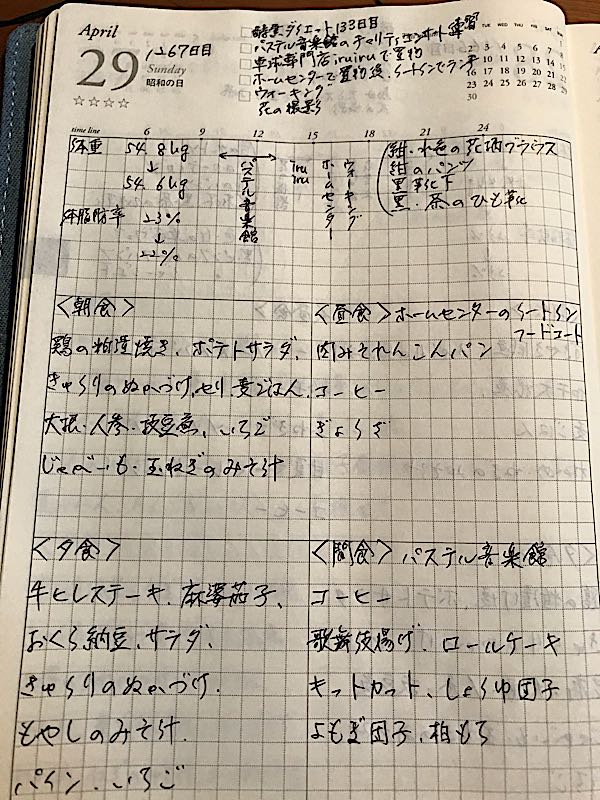 April
29
1267日目
Sunday
昭和の日
☆☆☆☆
酵素ダイエット133日目
パステル音楽館のチャリティコンサート練習
卓球専門店iruiruで買物
ホームセンターで買物後、イートインでランチ
ウォーキング
花の撮影
TUE WED THU FRI SAT SUN
1
2 3 4 5 6 7 8
9 10 11 12 13 14 15
16 17 18 19 20 21 22
23 24 25 26 27 28 29
30
time line 6 9 12 15 18 21 24
体重 54.8kg
↓
54.6kg
体脂肪率 23%
↓
22%
パステル音楽館
iru iru
ホームセンター
ウォーキング
紺・水色の花柄ブラウス
紺のパンツ
黒靴下
黒・茶のひも靴
<朝食>
鶏の粕漬焼き、ポテトサラダ、
きゅうりのぬかづけ、セリ、麦ごはん、
大根・人参・枝豆煮、いちご
じゃがいも・玉ねぎのみそ汁
<昼食>ホームセンターのイートイン
フードコート
肉みそれんこんパン
コーヒー
ぎょうざ
<夕食>
牛ヒレステーキ、麻婆茄子、
おくら納豆、サラダ、
きゅうりのぬかづけ、
もやしのみそ汁、
パイン、いちご
<間食>パステル音楽館
コーヒー
歌舞伎揚げ、ロールケーキ
キットカット、しょうゆ団子
よもぎ団子、柏もち